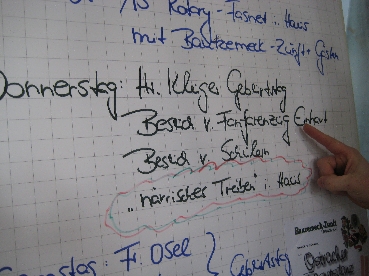 Rotary - Fasnet i. Haus
mit Bautzemeck - Zunft + Gästen
Donnerstag: Hr. Kluger Geburtstag
Besuch v. Fanfarenzug Erhart
Besuch v. Schülern
"närrisches Treiben" i. Haus
Samstag: Fr. Osel } Geburtstag